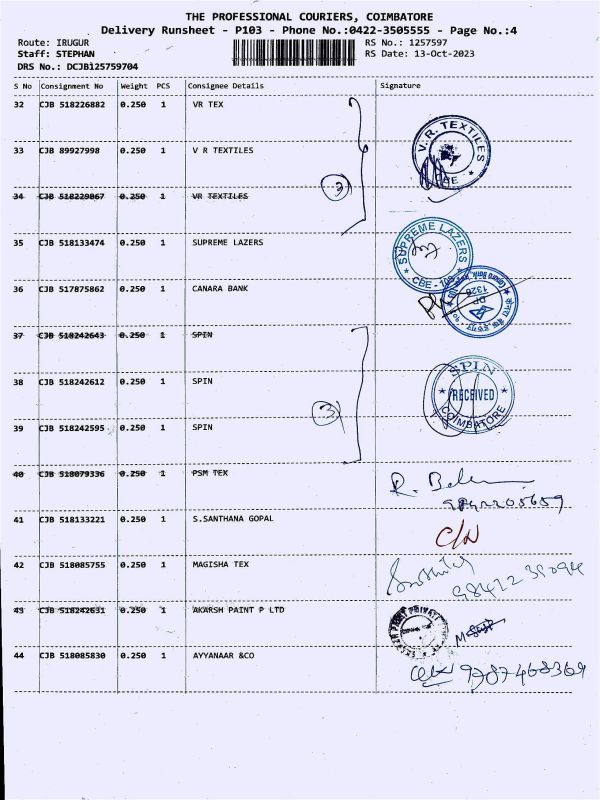 THE PROFESSIONAL COURIERS, COIMBATORE
Delivery Runsheet - P103 - Phone No.:0422-3505555 - Page No.:4
Route: IRUGUR RS No.: 1257597
Staff: STEPHAN RS Date: 13-Oct-2023
DRS No.: DCJB125759704
S No Consignment No Weight PCS Consignee Details Signature
32 CJB 518226882 0.250 1 VR TEX
33 CJB 89927998 0.250 1 V R TEXTILES
V. R. TEXTILES
CBE
3
34 CJB 518229867 0.250 1 VR TEXTILES
35 CJB 518133474 0.250 1 SUPREME LAZERS
SUPREME LAZERS
CBE - 103
36 CJB 517875862 0.250 1 CANARA BANK
Canara Bank
1326
DP
37 CJB 518242643 0.250 1 SPIN
38 CJB 518242612 0.250 1 SPIN
SPIN
RECEIVED
COIMBATORE
3
39 CJB 518242595 0.250 1 SPIN
40 CJB 518079336 0.250 1 PSM TEX
R.
41 CJB 518133221 0.250 1 S.SANTHANA GOPAL
C/N
42 CJB 518085755 0.250 1 MAGISHA TEX
43 CJB 518242631 0.250 1 AKARSH PAINT P LTD
44 CJB 518085830 0.250 1 AYYANAAR &CO
9787468369